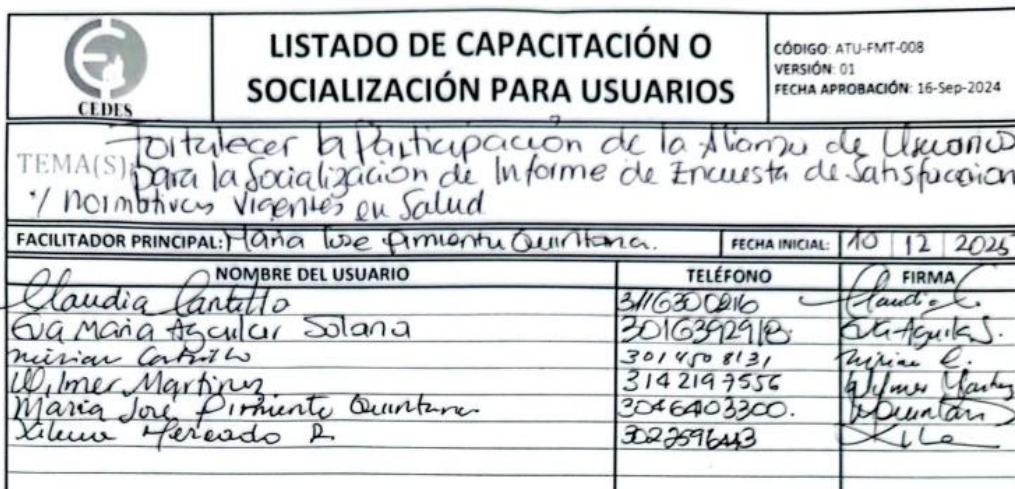 CEDES
LISTADO DE CAPACITACIÓN O
SOCIALIZACIÓN PARA USUARIOS
CÓDIGO: ATU-FMT-008
VERSIÓN: 01
FECHA APROBACIÓN: 16-Sep-2024
TEMA(S): Fortalecer la Participación de la Alianza de Usuarios
para la Socialización de Informe de Encuesta de Satisfaccion
y normativas Vigentes en Salud
FACILITADOR PRINCIPAL: Maria Jose Pimienta Quintana. FECHA INICIAL: 10 12 2025
NOMBRE DEL USUARIO TELÉFONO FIRMA
Claudia Cantillo Claudia C.
Eva Maria Aguilar Solana 3016392918. Eva Aguilar S.
3014508131
Wilmer Martinez 3142197556 Wilmer
Maria José Pimienta Quintana 3046403300.
Mercado R.